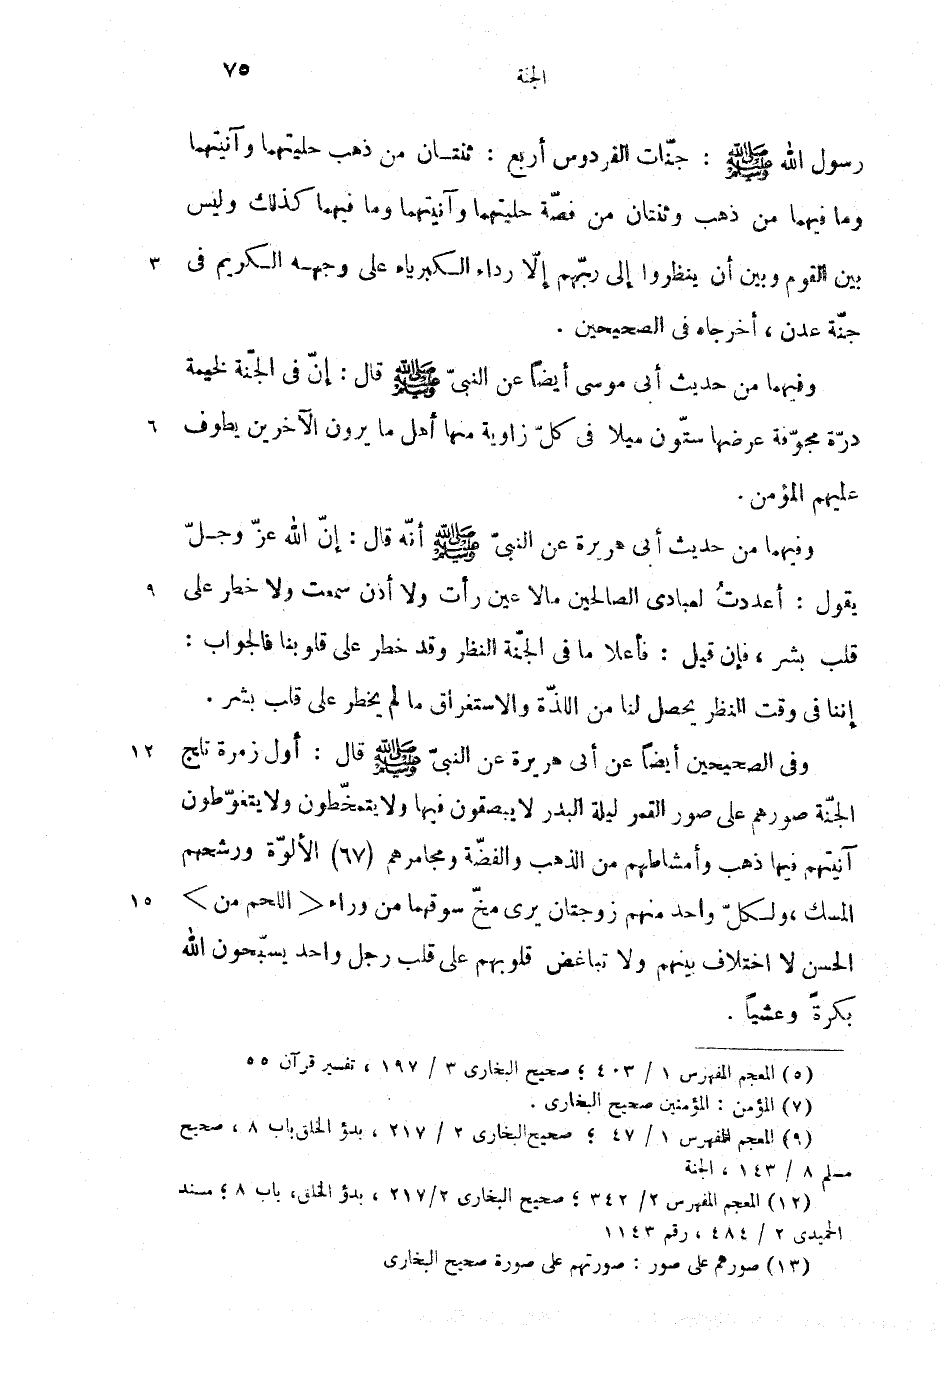 ٧٥ الجنة
رسول الله ﷺ : جنّات الفردوس أربع : ثنتان من ذهب حليتهما وآنيتهما
وما فيهما من ذهب وثنتان من فضّة حليتهما وآنيتهما وما فيهما كذلك وليس
بين القوم وبين أن ينظروا إلى ربّهم إلّا رداء الكبرياء على وجهه الكريم فى ٣
جنّة عدن ، أخرجاه فى الصحيحين .
وفيهما من حديث أبى موسى أيضاً عن النبىّ ﷺ قال : إنّ فى الجنّة لخيمة
درّة مجوّفة عرضها ستّون ميلا فى كلّ زاوية منها أهل ما يرون الآخرين يطوف ٦
عليهم المؤمن .
وفيهما من حديث أبى هريرة عن النبىّ ﷺ أنّه قال : إنّ الله عزّ وجلّ
يقول : أعددتُ لعبادى الصالحين مالا عين رأت ولا أذن سمعت ولا خطر على ٩
قلب بشر ، فإن قيل : فأعلا ما فى الجنّة النظر وقد خطر على قلوبنا فالجواب :
إننا فى وقت النظر يحصل لنا من اللذّة والاستغراق ما لم يخطر على قلب بشر .
وفى الصحيحين أيضاً عن أبى هريرة عن النبىّ ﷺ قال : أول زمرة تلج ١٢
الجنّة صورهم على صور القمر ليلة البدر لا يبصقون فيها ولا يتمخّطون ولا يتغوّطون
آنيتهم فيها ذهب وأمشاطهم من الذهب والفضّة ومجامرهم (٦٧) الألوّة ورشحهم
المسك ،ولكلّ واحد منهم زوجتان يرى مخّ سوقهما من وراء < اللحم من > ١٥
الحسن لا اختلاف بينهم ولا تباغض قلوبهم على قلب رجل واحد يسبّحون الله
بكرةً وعشياً .
(٥) المعجم المفهرس ١ / ٤٠٣ ؛ صحيح البخارى ٣ / ١٩٧ ، تفسير قرآن ٥٥
(٧) المؤمن : المؤمنين صحيح البخارى .
(٩) المعجم المفهرس ١ / ٤٧ ؛ صحيح البخارى ٢ / ٢١٧ ، بدؤ الخلق باب ٨ ، صحيح
مسلم ٨ / ١٤٣ ، الجنة
(١٢) المعجم المفهرس ٢/ ٣٤٢ ؛ صحيح البخارى ٢/ ٢١٧ ، بدؤ الخلق، باب ٨ ؛ مسند
الحميدى ٢ / ٤٨٤ ، رقم ١١٤٣
(١٣) صورهم على صور : صورتهم على صورة صحيح البخارى